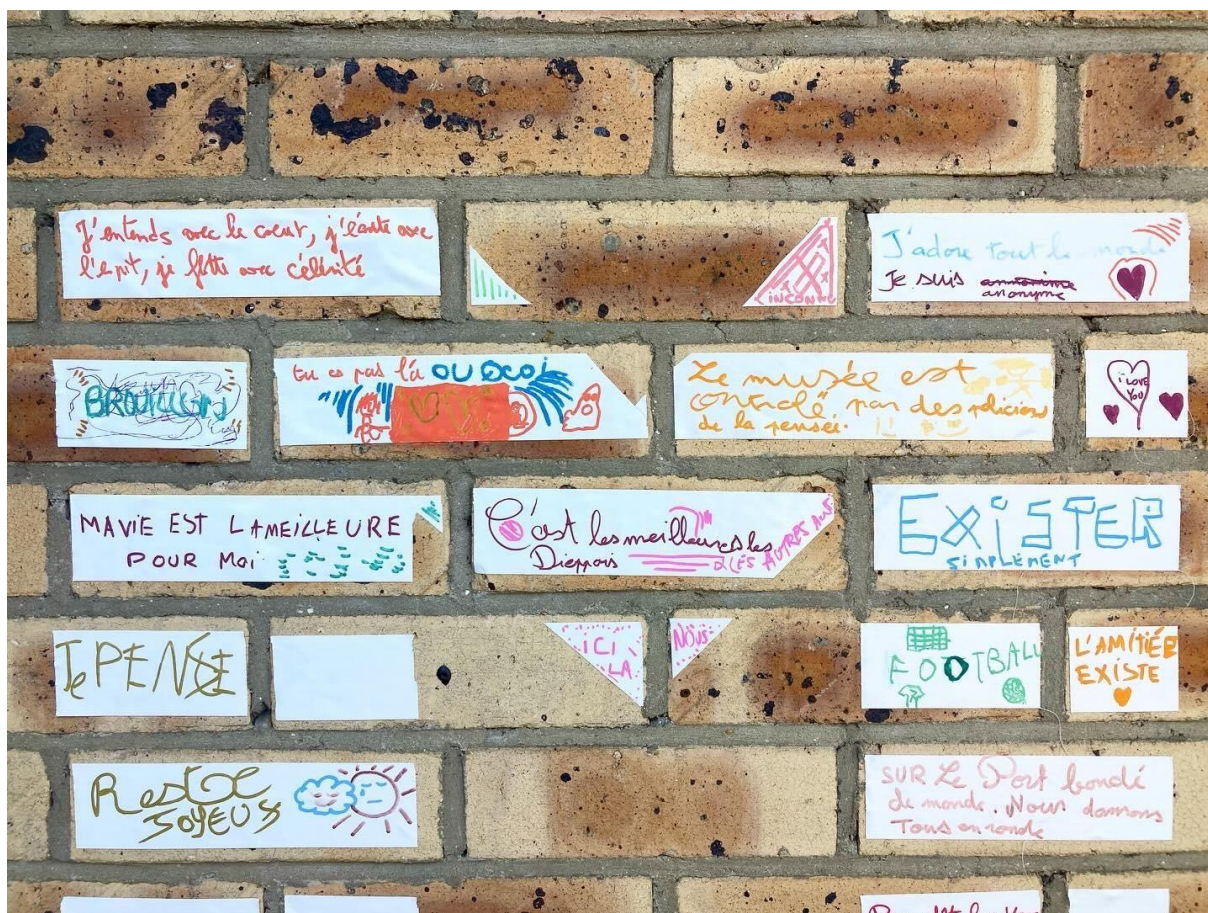 J'entends avec le cœur, j'écoute avec
l'e, je avec célérité
INCONNU
J'adore tout le monde
Je suis
anonyme
BROUILLONS
tu es pas là OU QUOI
Le musée est
contrôlé par des policiers
de la pensée.
i LOVE
You
MA VIE EST LA MEILLEURE
POUR Moi
C'est les meilleures les
Dieppois
LES AUTRES AUSSI
EXiSTER
SiMPLEMENT
Je PENSE
iCi
LA
NOUS
FOOTBALL
L'AMITIÉE
EXISTE
Reste
JOYEUX
SUR Le Port bondé
de monde. Nous dansons
Tous en ronde